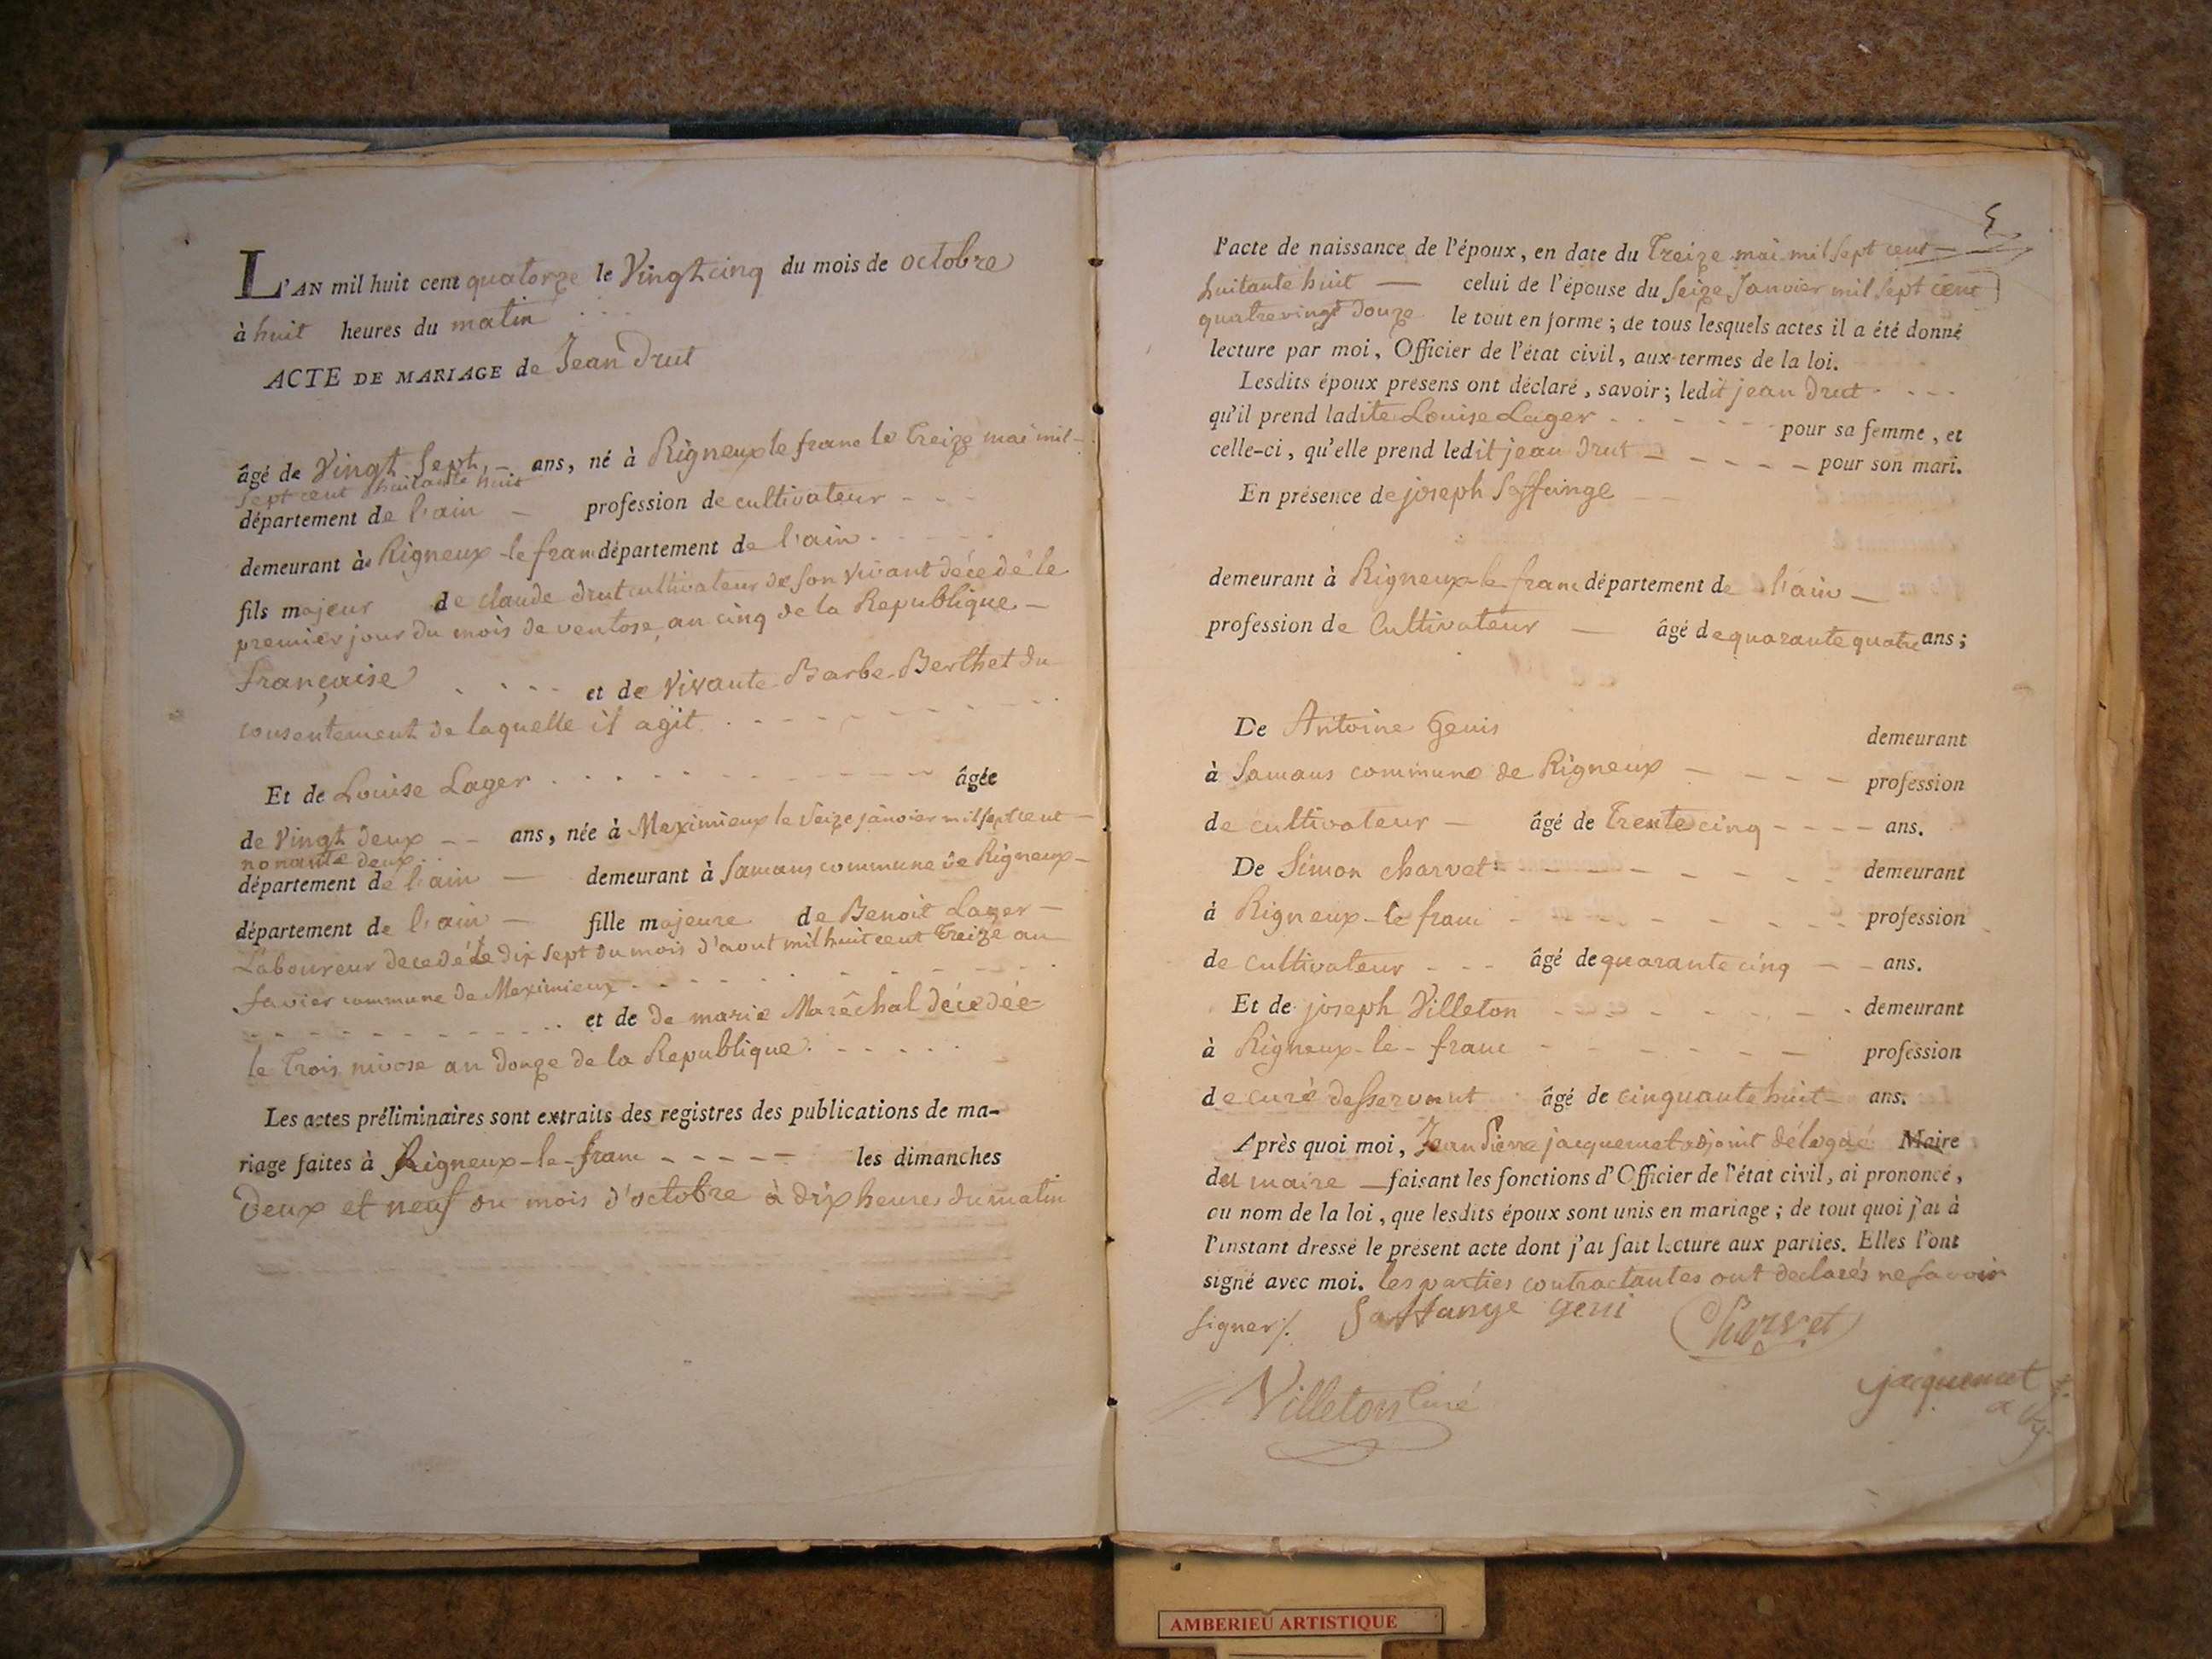 L'AN mil huit cent quatorze le Vingt cinq du mois de octobre
à huit heures du matin
ACTE DE MARIAGE de Jean Drut
âgé de Vingt Sept ans, né à Rigneux le franc le Treize mai mil
sept cent huitante huit
département de l'ain profession de cultivateur
demeurant à Rigneux-le franc département de l'ain
fils majeur de claude drut cultivateur de son vivant décedé le
premier jour du mois de ventose an cinq de la Republique
française et de vivante Barbe Berthet du
consentement de laquelle il agit
Et de Louise Lager âgée
de Vingt deux ans, née à Meximieux le Seize janvier mil sept cent
nonante deux
département de l'ain demeurant à Samans commune de Rigneux
département de l'ain fille majeure de Benoit Lager
Laboureur decedé le dix sept du mois d'aout mil huit cent Treize au
favier commune de Meximieux
et de de marie Maréchal décedée
le Trois nivose an Douze de la Republique
Les actes préliminaires sont extraits des registres des publications de ma-
riage faites à Rigneux-le-franc les dimanches
Deux et neuf du mois d'octobre à dix heures du matin
l'acte de naissance de l'époux, en date du Treize mai mil sept cent
huitante huit celui de l'épouse du Seize Janvier mil sept cent
quatrevingt Douze le tout en forme; de tous lesquels actes il a été donné
lecture par moi, Officier de l'état civil, aux termes de la loi.
Lesdits époux présens ont déclaré, savoir; ledit jean Drut
qu'il prend ladite Louise Lager pour sa femme, et
celle-ci, qu'elle prend ledit jean Drut pour son mari.
En présence de joseph
demeurant à Rigneux-le franc département de l'ain
profession de Cultivateur âgé de quarante quatre ans;
De Antoine Genis demeurant
à Samans commune de Rigneux profession
de cultivateur âgé de Trente cinq ans.
De Simon charvet demeurant
à Rigneux-le franc profession
de cultivateur âgé de quarante cinq ans.
Et de joseph Villeton demeurant
à Rigneux-le-franc profession
de curé desservant âgé de cinquante huit ans.
Après quoi moi, Jean Pierre jacquemet adjoint délegué Maire
du maire faisant les fonctions d'Officier de l'état civil, ai prononcé,
au nom de la loi, que lesdits époux sont unis en mariage; de tout quoi j'ai à
l'instant dressé le présent acte dont j'ai fait lecture aux parties. Elles l'ont
signé avec moi. les parties contractantes ont declarés ne savoir
signer Geni Charvet
Villeton Curé jacquemet
AMBERIEU ARTISTIQUE